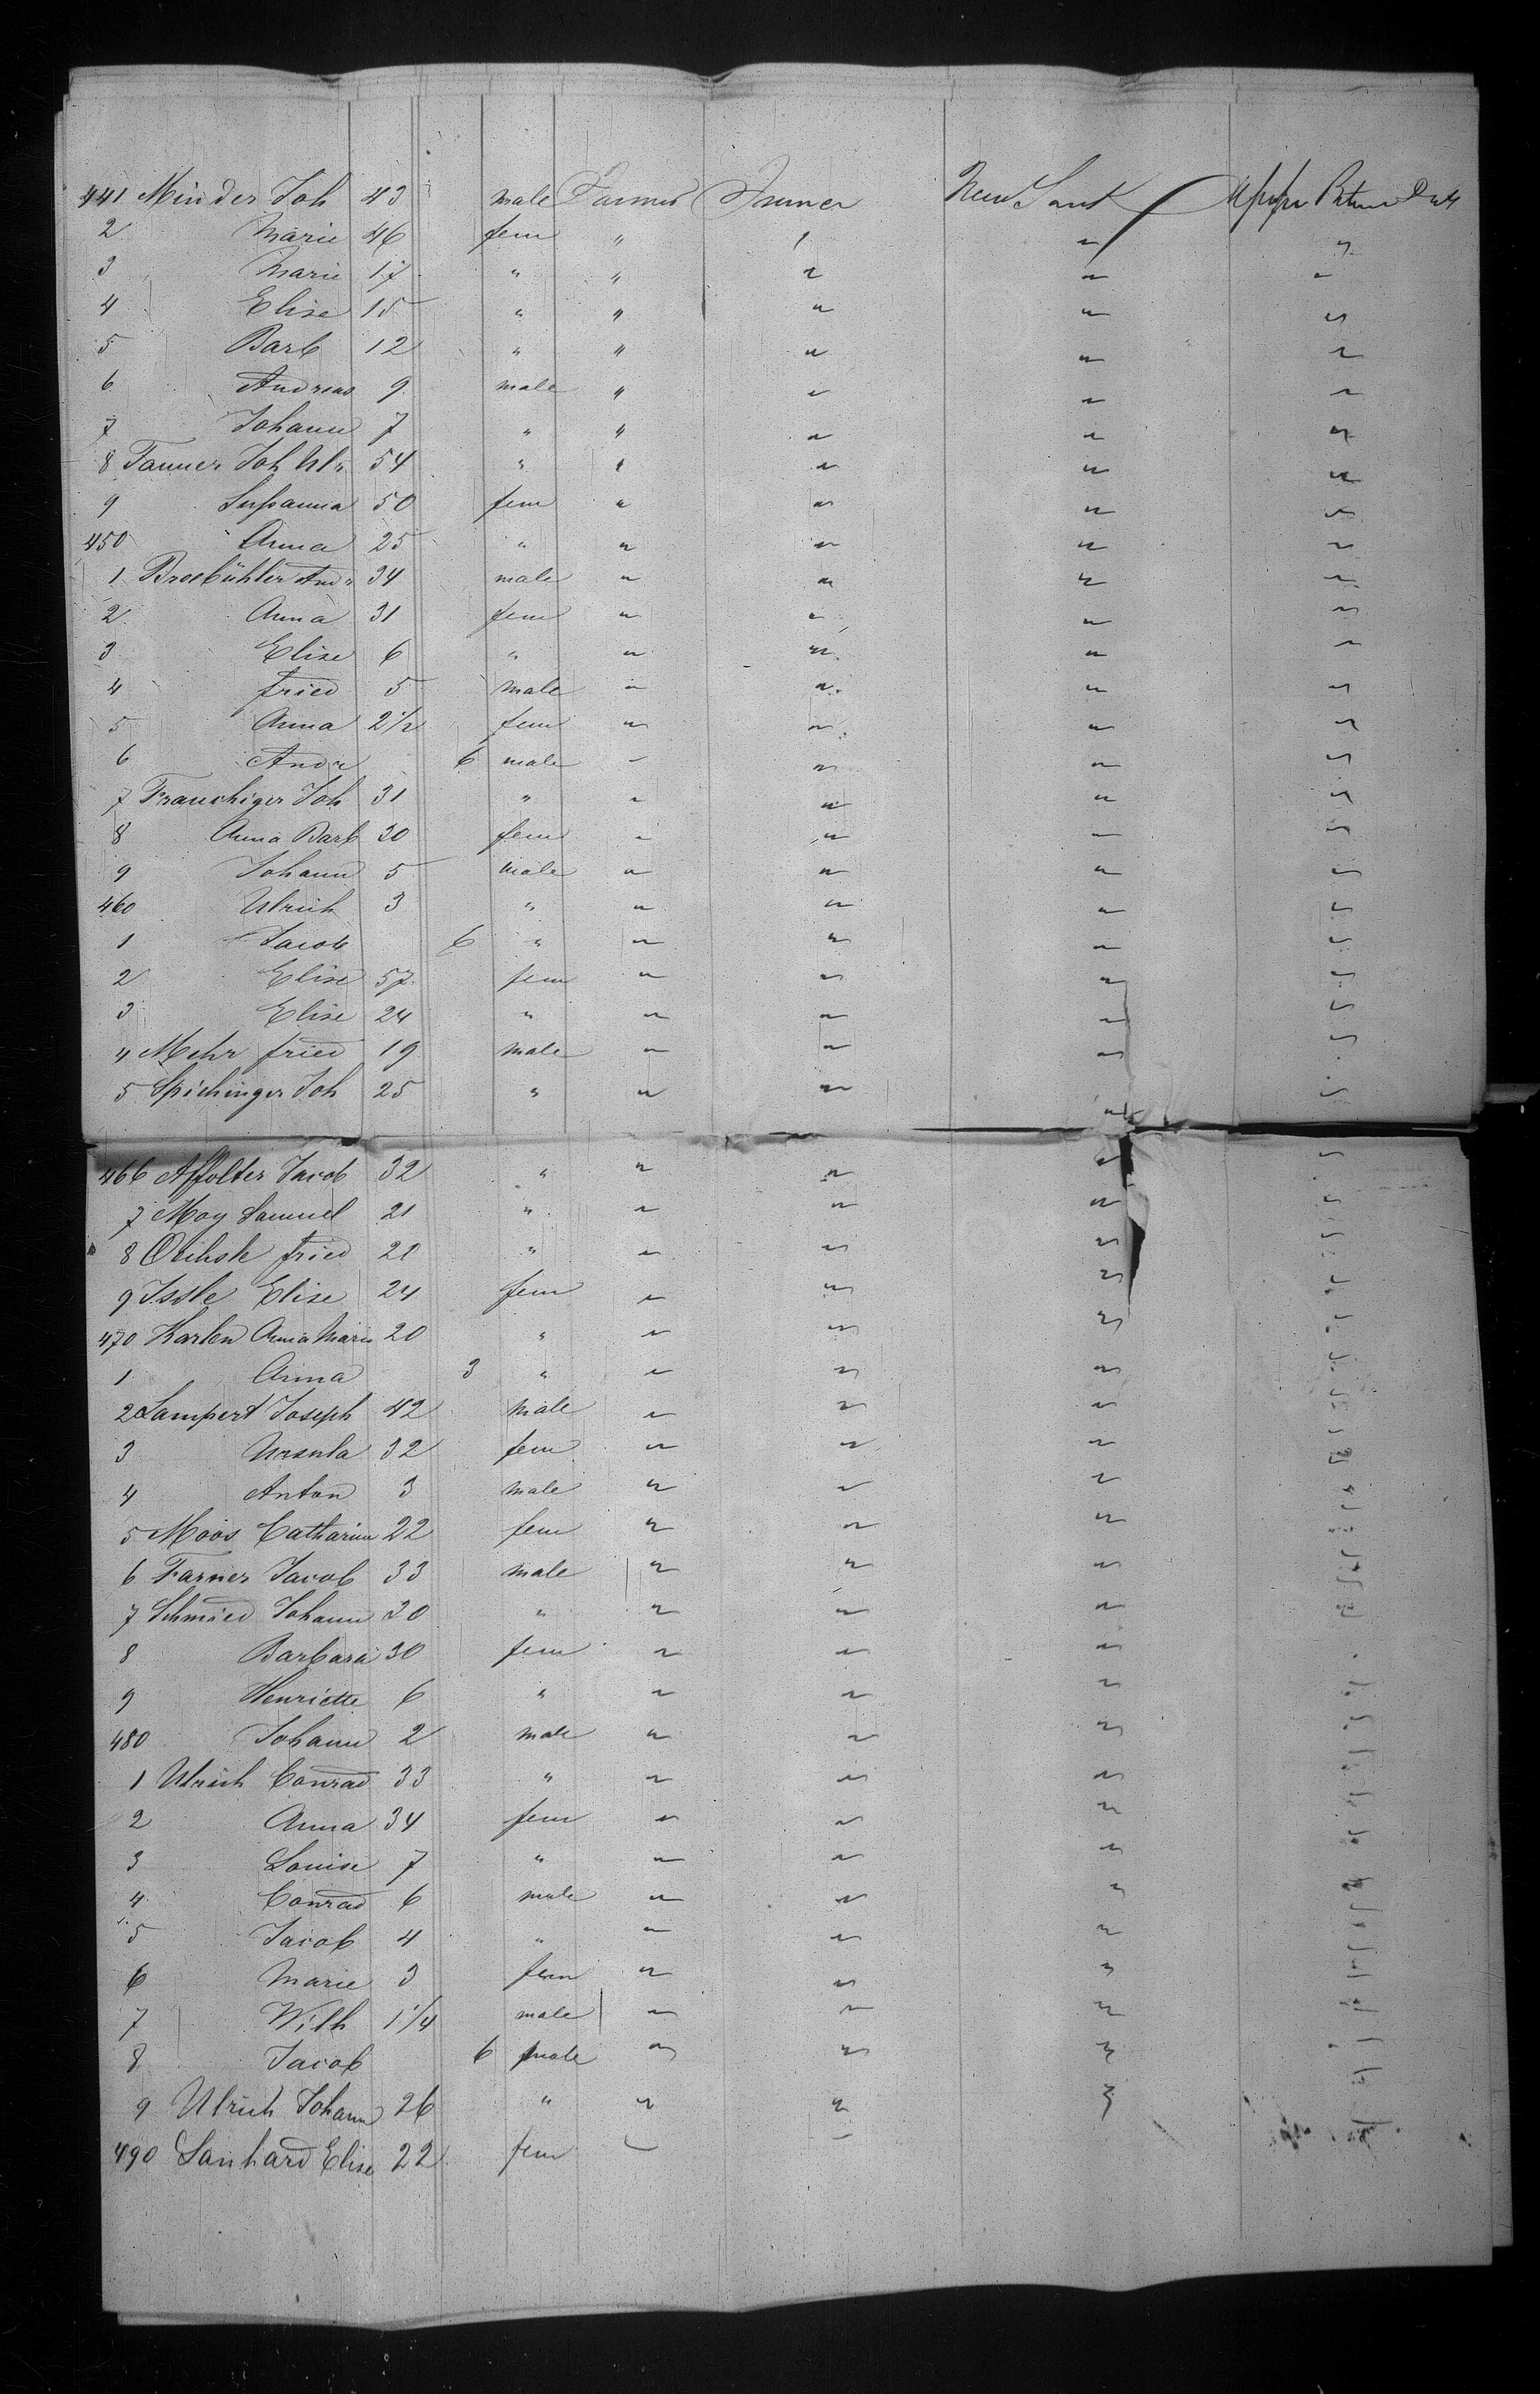 441 Minder Joh 43 male Farmer New
2 Marie 46 fem " " "
3 Marie 17 " " " " "
4 Elise 15 " " " " "
5 Barb 12 " " " " "
6 Andreas 9 male " " " "
7 Johann 7 " " " " "
8 Tanner Joh Ulr 54 " " " " "
9 Susanna 50 fem " " " "
450 Anna 25 " " " " "
1 Andr 34 male " " " "
2 Anna 31 fem " " " "
3 Elise 6 " " " " "
4 fried 5 male " " " "
5 Anna 2 1/2 fem " " " "
6 Andr 6 male " " " "
7 Frauchiger Joh 31 " " " " "
8 Anna Barb 30 fem " " " "
9 Johann 5 male " " " "
460 Ulrich 3 " " " " "
1 Jacob 6 " " " " "
2 Elise 57 fem " " " "
3 Elise 24 " " " " "
4 Mehr fried 19 male " " " "
5 Spichinger Joh 25 " " " " "
466 Affolter Jacob 32 " " " " "
7 Moy Samuel 21 " " " " "
8 fried 21 " " " " "
9 Elise 24 fem " " " "
470 Karlen Anna Marie 20 " " " " "
1 Anna 3 " " " " "
2 Lampert Joseph 42 male " " " "
3 Ursula 32 fem " " " "
4 Anton 3 male " " " "
5 Moos Catharina 22 fem " " " "
6 Farner Jacob 33 male " " " "
7 Schmied Johann 30 " " " " "
8 Barbara 30 fem " " "
9 Henriette 6 " " " " "
480 Johann 2 male " " " "
1 Ulrich Conrad 33 " " " " "
2 Anna 34 fem " " " "
3 Louise 7 " " " " "
4 Conrad 6 male " " " "
5 Jacob 4 " " " " "
6 Marie 3 fem " " " "
7 Wilh 1 1/4 male " " " "
8 Jacob 6 male " " " "
9 Ulrich Johann 26 " " " " "
490 Lanhard Elise 22 fem " "